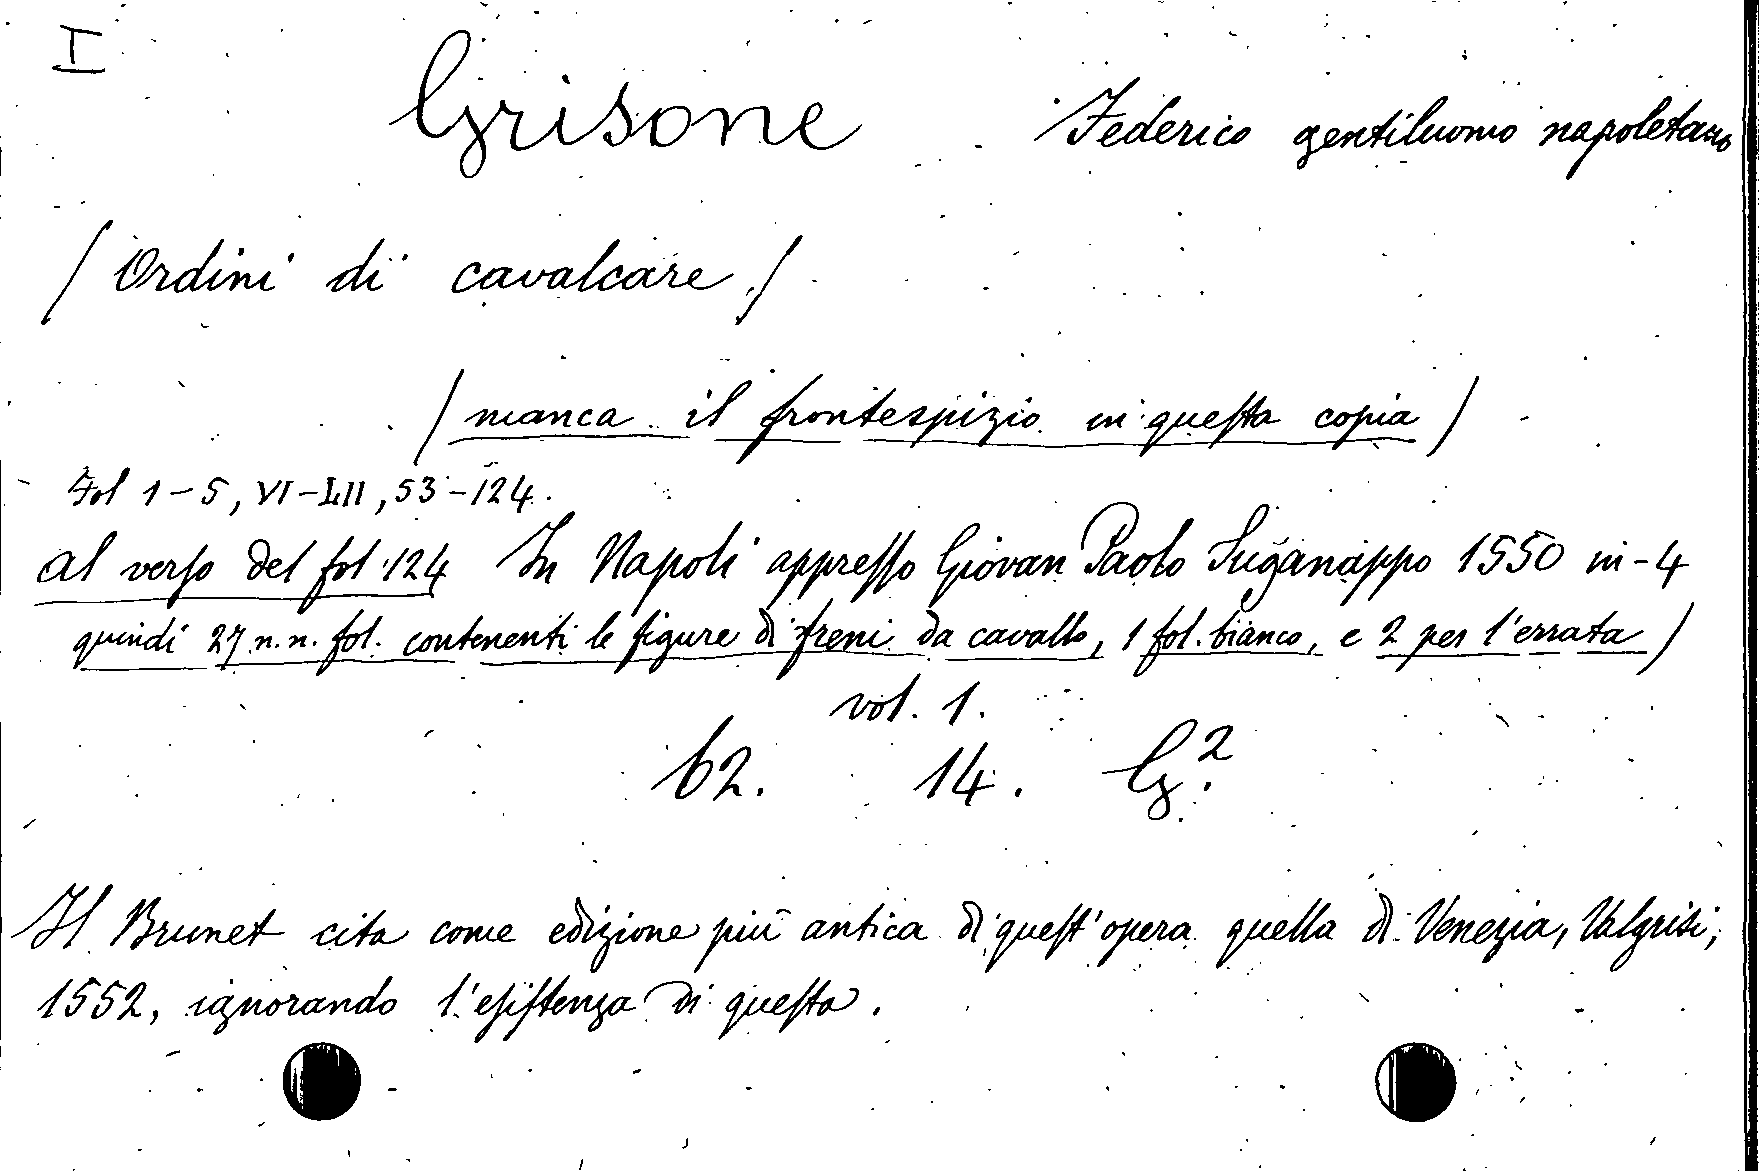 I
Grisone Federico gentiluomo napoletano
/ Ordini di cavalcare /
/ manca il frontespizio in questa copia /
Fol 1-5, VI-LII, 53-124.
al verso del fol. 124 In Napoli appresso Giovan Paolo Suganappo 1550 in-4
quindi 27 n.n. fol. contenenti le figure di freni da cavallo, 1 fol. bianco, e 2 per l'errata /
vol. 1.
62. 14. G.²
Il Brunet cita come edizione più antica di quest'opera quella di Venezia, Valgrisi,
1552, ignorando l'esistenza di questa.